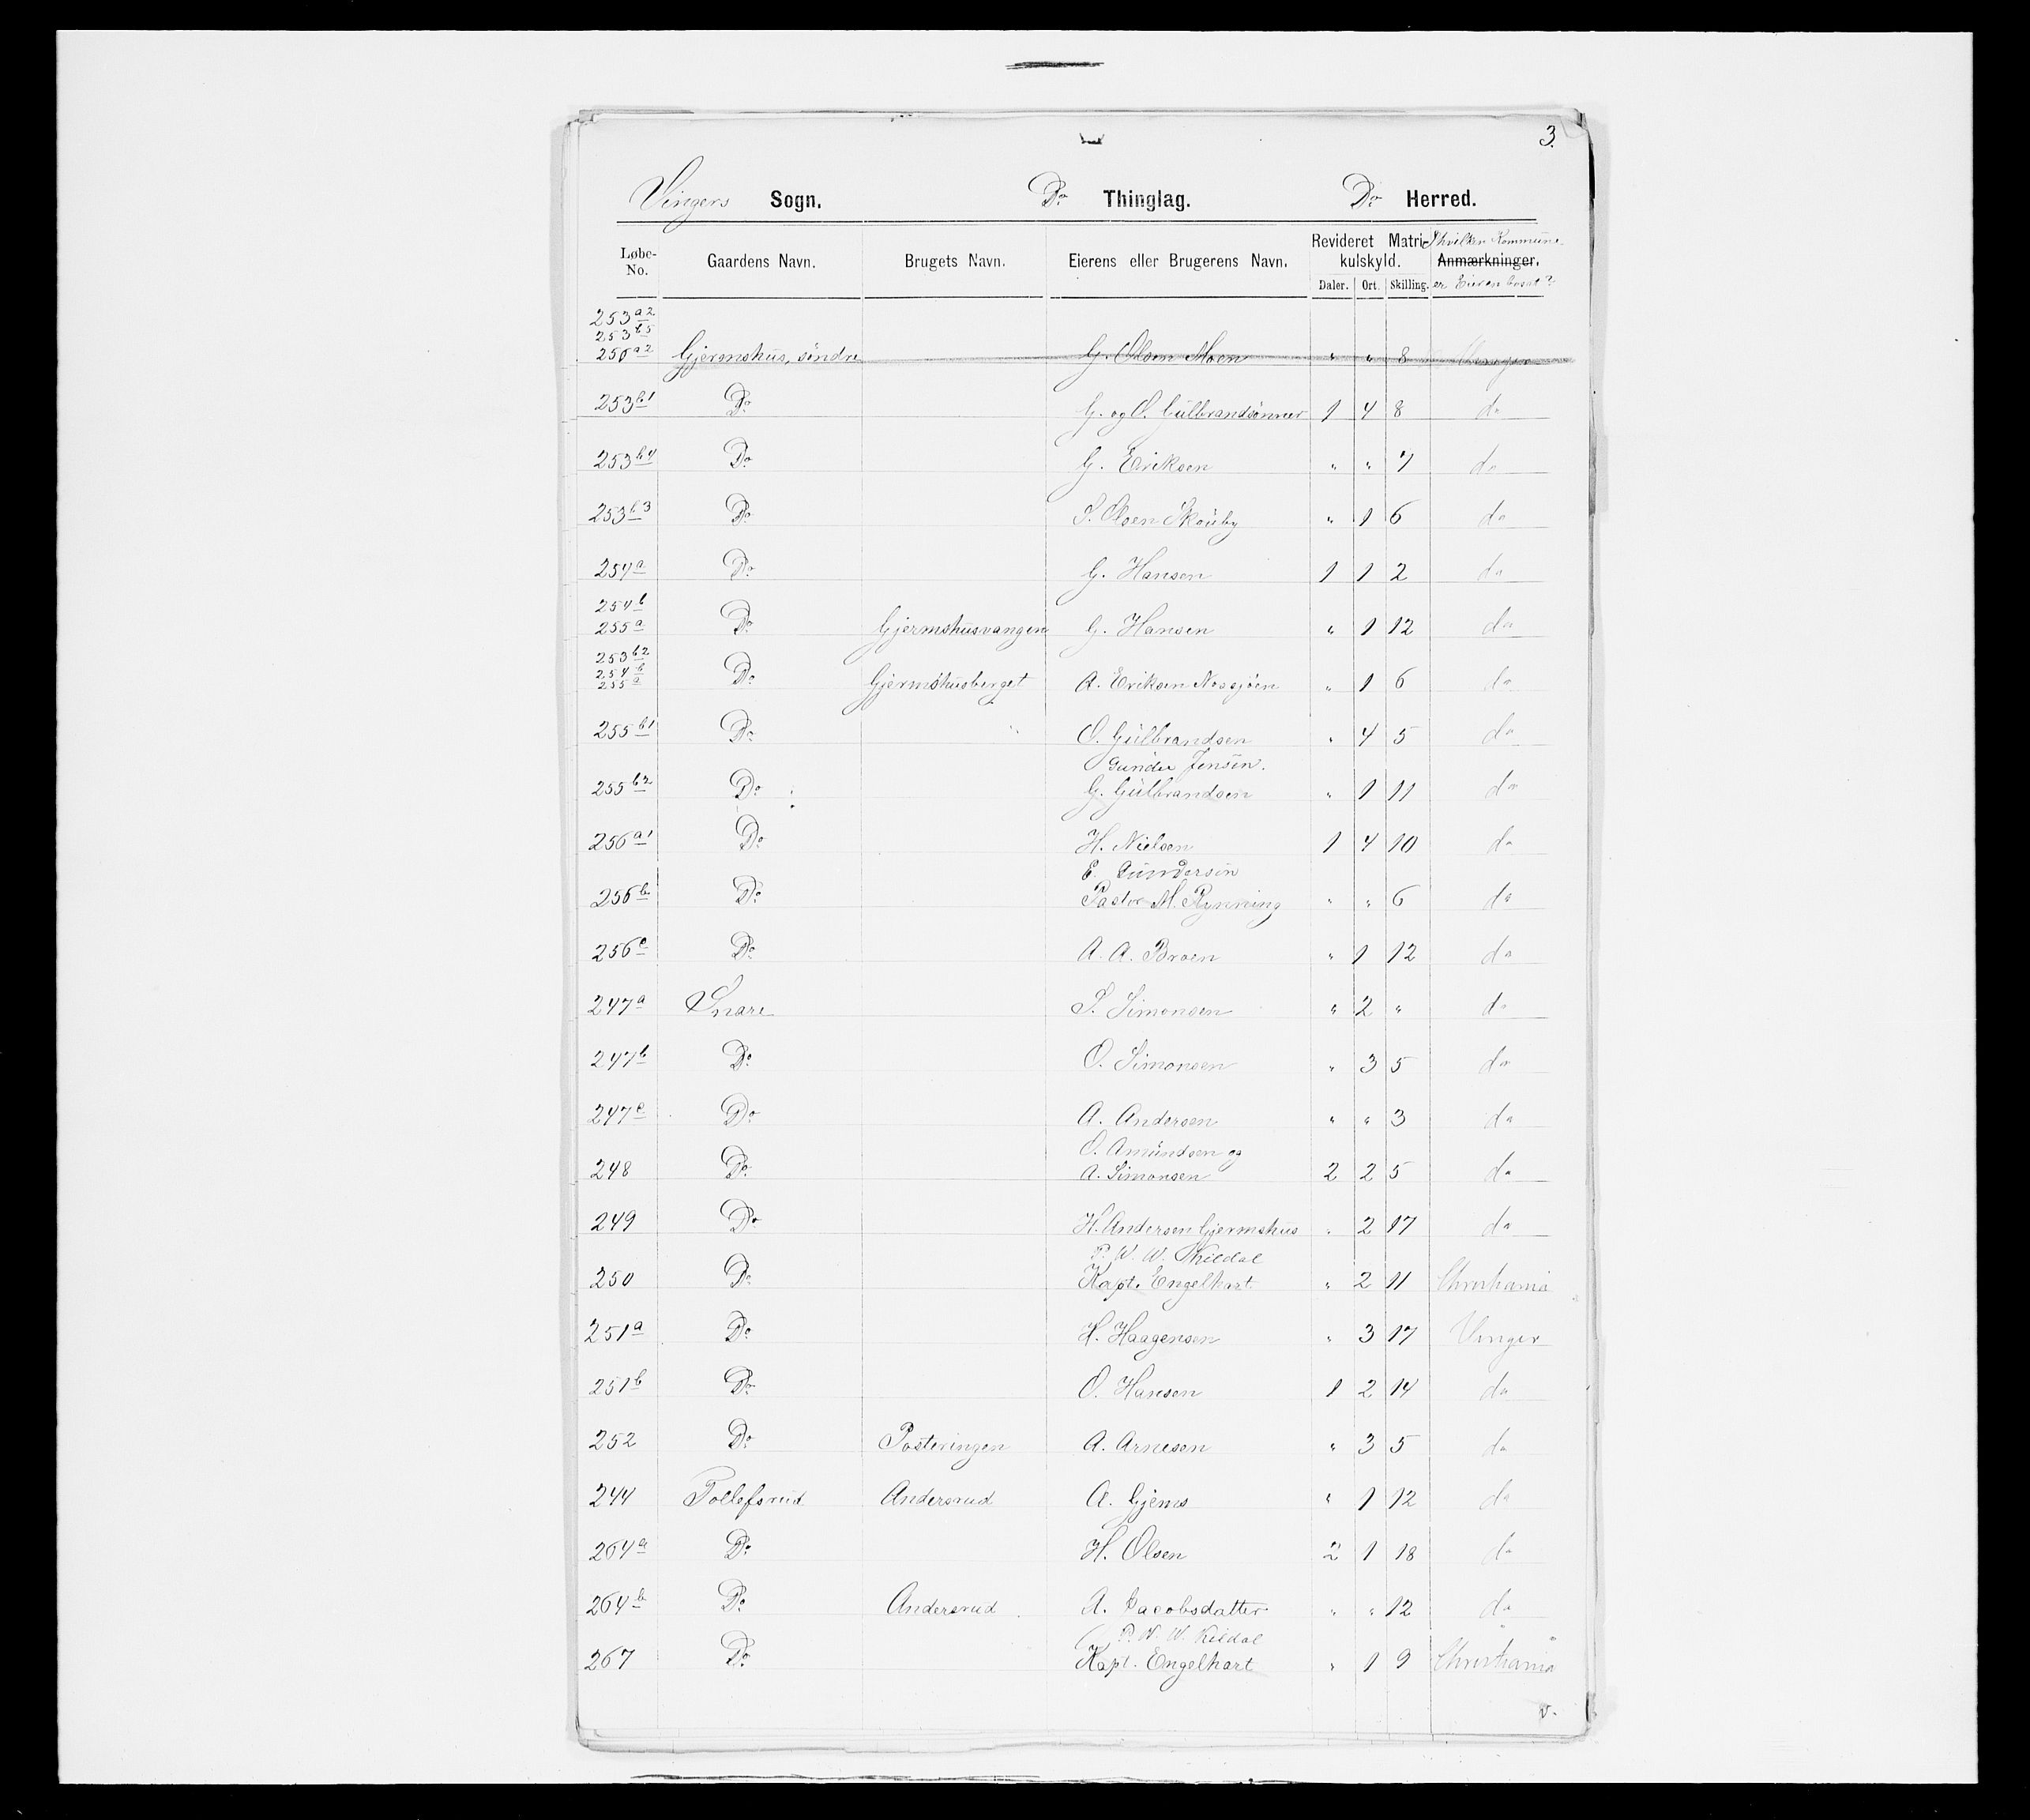 3.
Vingers Sogn. Do Thinglag. Do Herred.
Løbe-No. Gaardens Navn. Brugets Navn. Eierens eller Brugerens Navn. Revideret Matrikulskyld. Daler. Ort. Skilling. I hvilken Kommune Anmærkninger. er Eieren bosat?
253 a2
253 b5
256 a2 Gjermshus, søndre G. Olsen Moen " " 8 Vinger
253 b1 Do G. og O. Gulbrandsønner 1 4 8 do
253 b4 Do G. Eriksen " " 7 do
253 b3 Do S. Olsen Skouby " 1 6 do
254 a Do G. Hansen 1 1 2 do
254 b
255 a Do Gjermshusvangen G. Hansen " 1 12 do
253 b2
254 b
255 a Do Gjermshusberget A. Eriksen Nossjøen " 1 6 do
255 b1 Do O. Gulbrandsen " 4 5 do
Gunder Jensen.
255 b2 Do G. Gulbrandsen " 1 11 do
256 a1 Do H. Nielsen 1 4 10 do
E. Gundersen
256 b Do Pastor M. Rynning " " 6 do
256 c Do A. A. Broen " 1 12 do
247 a Snare S. Simonsen " 2 " do
247 b Do O. Simonsen " 3 5 do
247 c Do A. Andersen " " 3 do
O. Amundsen og
248 Do A. Simonsen 2 2 5 do
249 Do H. Andersen Gjermshus " 2 17 do
P. W. W. Kildal
250 Do Kapt. Engelhart " 2 11 Christiania
251 a Do H. Haagensen " 3 17 Vinger
251 b Do O. Hansen 1 2 14 do
252 Do Posteringen A. Arnesen " 3 5 do
244 Tollefsrud Andersrud A. Gjems " 1 12 do
264 a Do H. Olsen 2 1 18 do
264 b Do Andersrud A. Jacobsdatter " " 12 do
P. W. W. Kildal
267 Do Kapt. Engelhart " 1 9 Christiania
v.